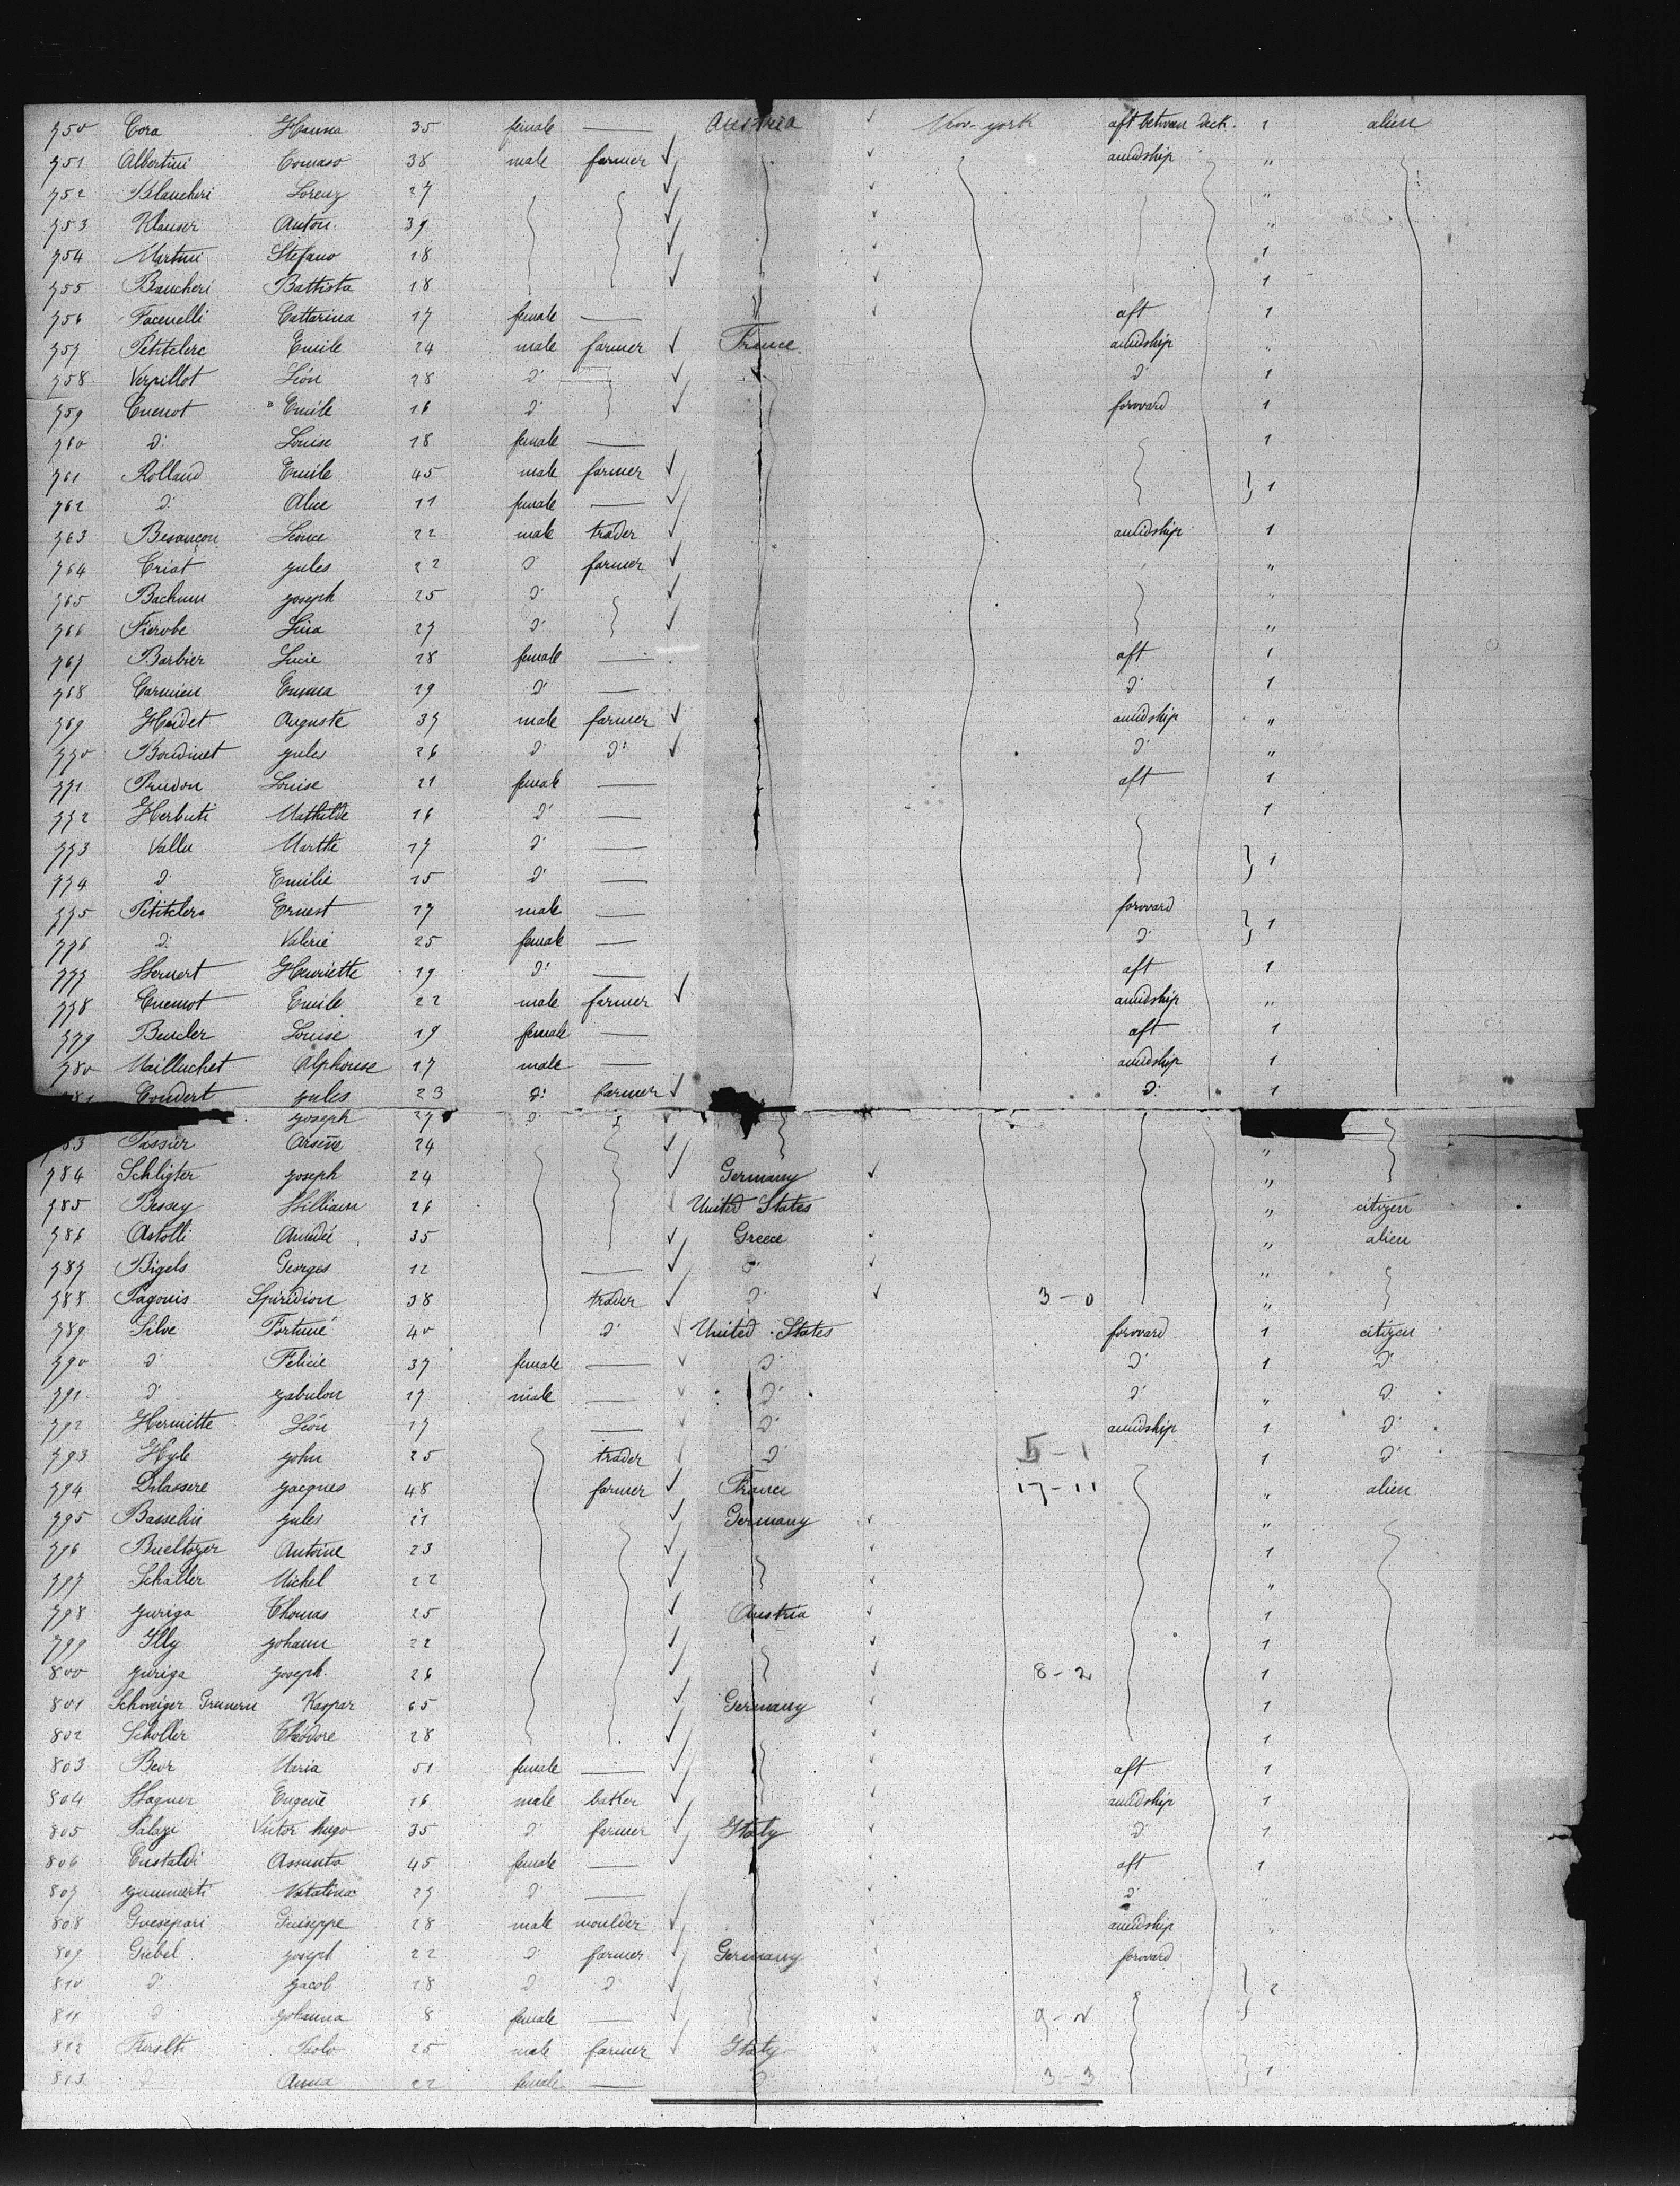 750 Cora Hanna 35 female — Austria New-york aft betwen deck. 1 alien
751 Albertini Tomaso 38 male farmer amidship "
752 Blancheri Lorenz 27 "
753 Klauser Anton. 39 "
754 Martini Stefano 18 1
755 Baucheri Battista 18 1
756 Facenelli Cattarina 17 female — aft 1
757 Petitclerc Emile 24 male farmer France amidship "
758 Verpillot Léon 28 d° d° 1
759 Cuenot Emile 16 d° forward 1
760 d° Louise 18 female — 1
761 Rolland Emile 45 male farmer
762 d° Alice 11 female — 1
763 Besançon Leonce 22 male trader amidship 1
764 Criat jules 22 d° farmer "
765 Bachum joseph 25 d° "
766 Fierobe Lina 27 d° "
767 Barbier Lucie 28 female — aft 1
768 Carmien Emma 29 d° — d° 1
769 Haidet Auguste 37 male farmer amidship "
770 Boudinet jules 26 d° d° d° "
771 Prudon Louise 21 female — aft 1
772 Herbuti Mathilde 16 d° — 1
773 Vallu Marthe 17 d° — 1
774 d° Emilie 15 d° —
775 Petitclerc Ernest 27 male — forward 1
776 d° Valerie 25 female — d°
777 Wernert Henriette 19 d° — aft 1
778 Cuenot Emile 22 male farmer amidship "
779 Beucler Louise 19 female — aft 1
780 Mailluchet Alphonse 17 male — amidship 1
781 Coudert jules 23 d° farmer d° 1
joseph 27 d°
83 Tissier Arsène 24 "
784 Schligter joseph 24 Germany "
785 Bessey William 26 United States " citizen
786 Astolli Amédée 35 Greece " alien
787 Bigels Georges 12 — d° "
788 Pagonis Spiridion 38 trader d° 3-0 "
789 Silve Fortuné 40 d° United States forward 1 citizen
790 d° Felicie 37 female — d° d° 1 d°
791 d° zabulon 17 male — d° d° " d°
792 Hermitte Léon 17 — d° amidship 1 d°
793 Hyle john 25 trader d° 5-1 1 d°
794 Dilassere jacques 48 farmer France 17-11 " alien
795 Basselin jules 21 Germany "
796 Bueltozer Antoine 23 1
797 Schaller Michel 22 "
798 juriga Thomas 25 Austria 1
799 Illy johann 22 1
800 juriga joseph. 26 8-2 1
801 Schweiger Grunern Kaspar 65 Germany 1
802 Scholler Théodore 28 1
803 Beor Maria 51 female — aft 1
804 Wagner Eugene 16 male baker amidship 1
805 Palazi Victor hugo 35 d° farmer Italy d° 1
806 Custaldi Assunta 45 female — aft 1
807 Natalina 27 d° — d° "
808 Guesepari Guiseppe 28 male moulder amidship "
809 Giebel joseph 22 d° farmer Germany forward
810 d° jacob 28 d° d° 2
811 d° johanna 8 female — 9-2
812 Paolo 25 male farmer Italy
813 Anna 22 female — d° 3-3 1